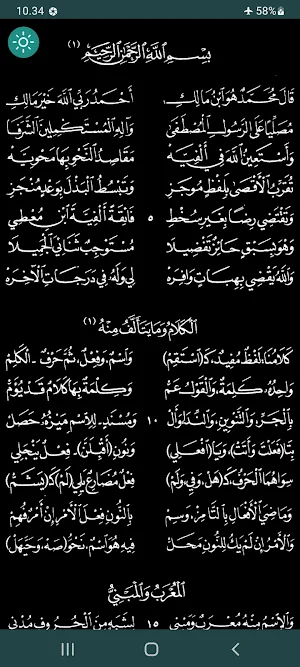 10.34
58%
بِسْمِ اللَّهِ الرَّحْمَنِ الرَّحِيمِ (١)
قَالَ مُحَمَّدٌ هُوَ ابْنُ مَالِكِ: أَحْمَدُ رَبِّي اللَّهَ خَيْرَ مَالِكِ
مُصَلِّيًا عَلَى الرَّسُولِ الْمُصْطَفَى وَآلِهِ الْمُسْتَكْمِلِينَ الشَّرَفَا
وَأَسْتَعِينُ اللَّهَ فِي أَلْفِيَّهْ مَقَاصِدُ النَّحْوِ بِهَا مَحْوِيَّهْ
تُقَرِّبُ الْأَقْصَى بِلَفْظٍ مُوجَزِ وَتَبْسُطُ الْبَذْلَ بِوَعْدٍ مُنْجَزِ
وَتَقْتَضِي رِضًا بِغَيْرِ سُخْطِ ٥ فَائِقَةً أَلْفِيَّةَ ابْنِ مُعْطِي
وَهُوَ بِسَبْقٍ حَائِزٌ تَفْضِيلَا مُسْتَوْجِبٌ ثَنَائِيَ الْجَمِيلَا
وَاللَّهُ يَقْضِي بِهِبَاتٍ وَافِرَهْ لِي وَلَهُ فِي دَرَجَاتِ الْآخِرَهْ
الْكَلَامُ وَمَا يَتَأَلَّفُ مِنْهُ (١)
كَلَامُنَا لَفْظٌ مُفِيدٌ، كَـ(اسْتَقِمْ) وَاسْمٌ، وَفِعْلٌ، ثُمَّ حَرْفٌ - الْكَلِمْ
وَاحِدُهُ: كَلِمَةٌ، وَالْقَوْلُ عَمّْ وَكِلْمَةٌ بِهَا كَلَامٌ قَدْ يُؤَمّْ
بِالْجَرِّ، وَالتَّنْوِينِ، وَالنِّدَا، وَأَلْ ١٠ وَمُسْنَدٍ - لِلِاسْمِ مَيْزُهُ حَصَلْ
بِتَا (فَعَلْتَ وَأَتَتْ)، وَيَا (افْعَلِي) وَنُونِ (أَقْبِلَنَّ) - فِعْلٌ يَنْجَلِي
سِوَاهُمَا الْحَرْفُ، كَـ(هَلْ، وَفِي، وَلَمْ) فِعْلٌ مُضَارِعٌ يَلِي (لَمْ) كَـ(يَشَمّْ)
وَمَاضِيَ الْأَفْعَالِ بِالتَّا مِزْ، وَسِمْ بِالنُّونِ فِعْلَ الْأَمْرِ إِنْ أَمْرٌ فُهِمْ
وَالْأَمْرُ إِنْ لَمْ يَكُ لِلنُّونِ مَحَلّْ فِيهِ هُوَ اسْمٌ، نَحْوُ (صَهْ، وَحَيَّهَلْ)
الْمُعْرَبُ وَالْمَبْنِيُّ
وَالِاسْمُ مِنْهُ مُعْرَبٌ وَمَبْنِي ١٥ لِشَبَهٍ مِنَ الْحُرُوفِ مُدْنِي